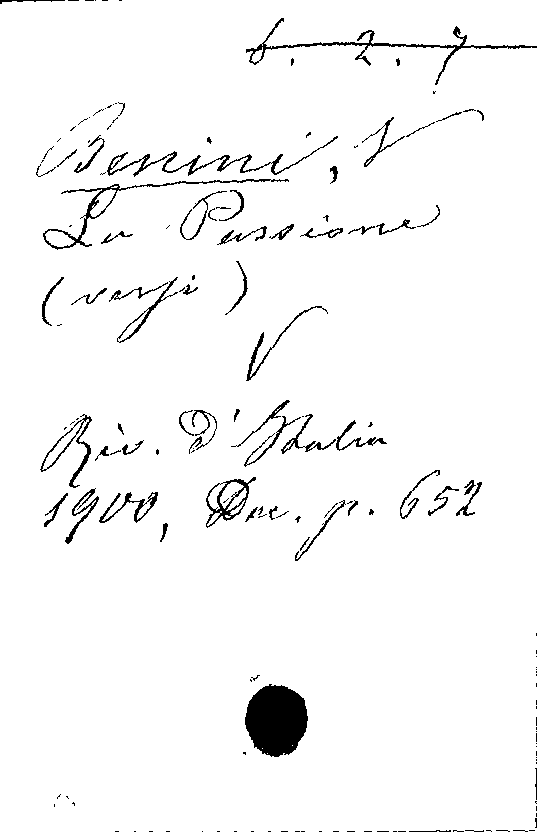 6. 2. 7
Benini, V
La Passione
(versi)
V
Riv. d'Italia
1900, Dec. p. 652